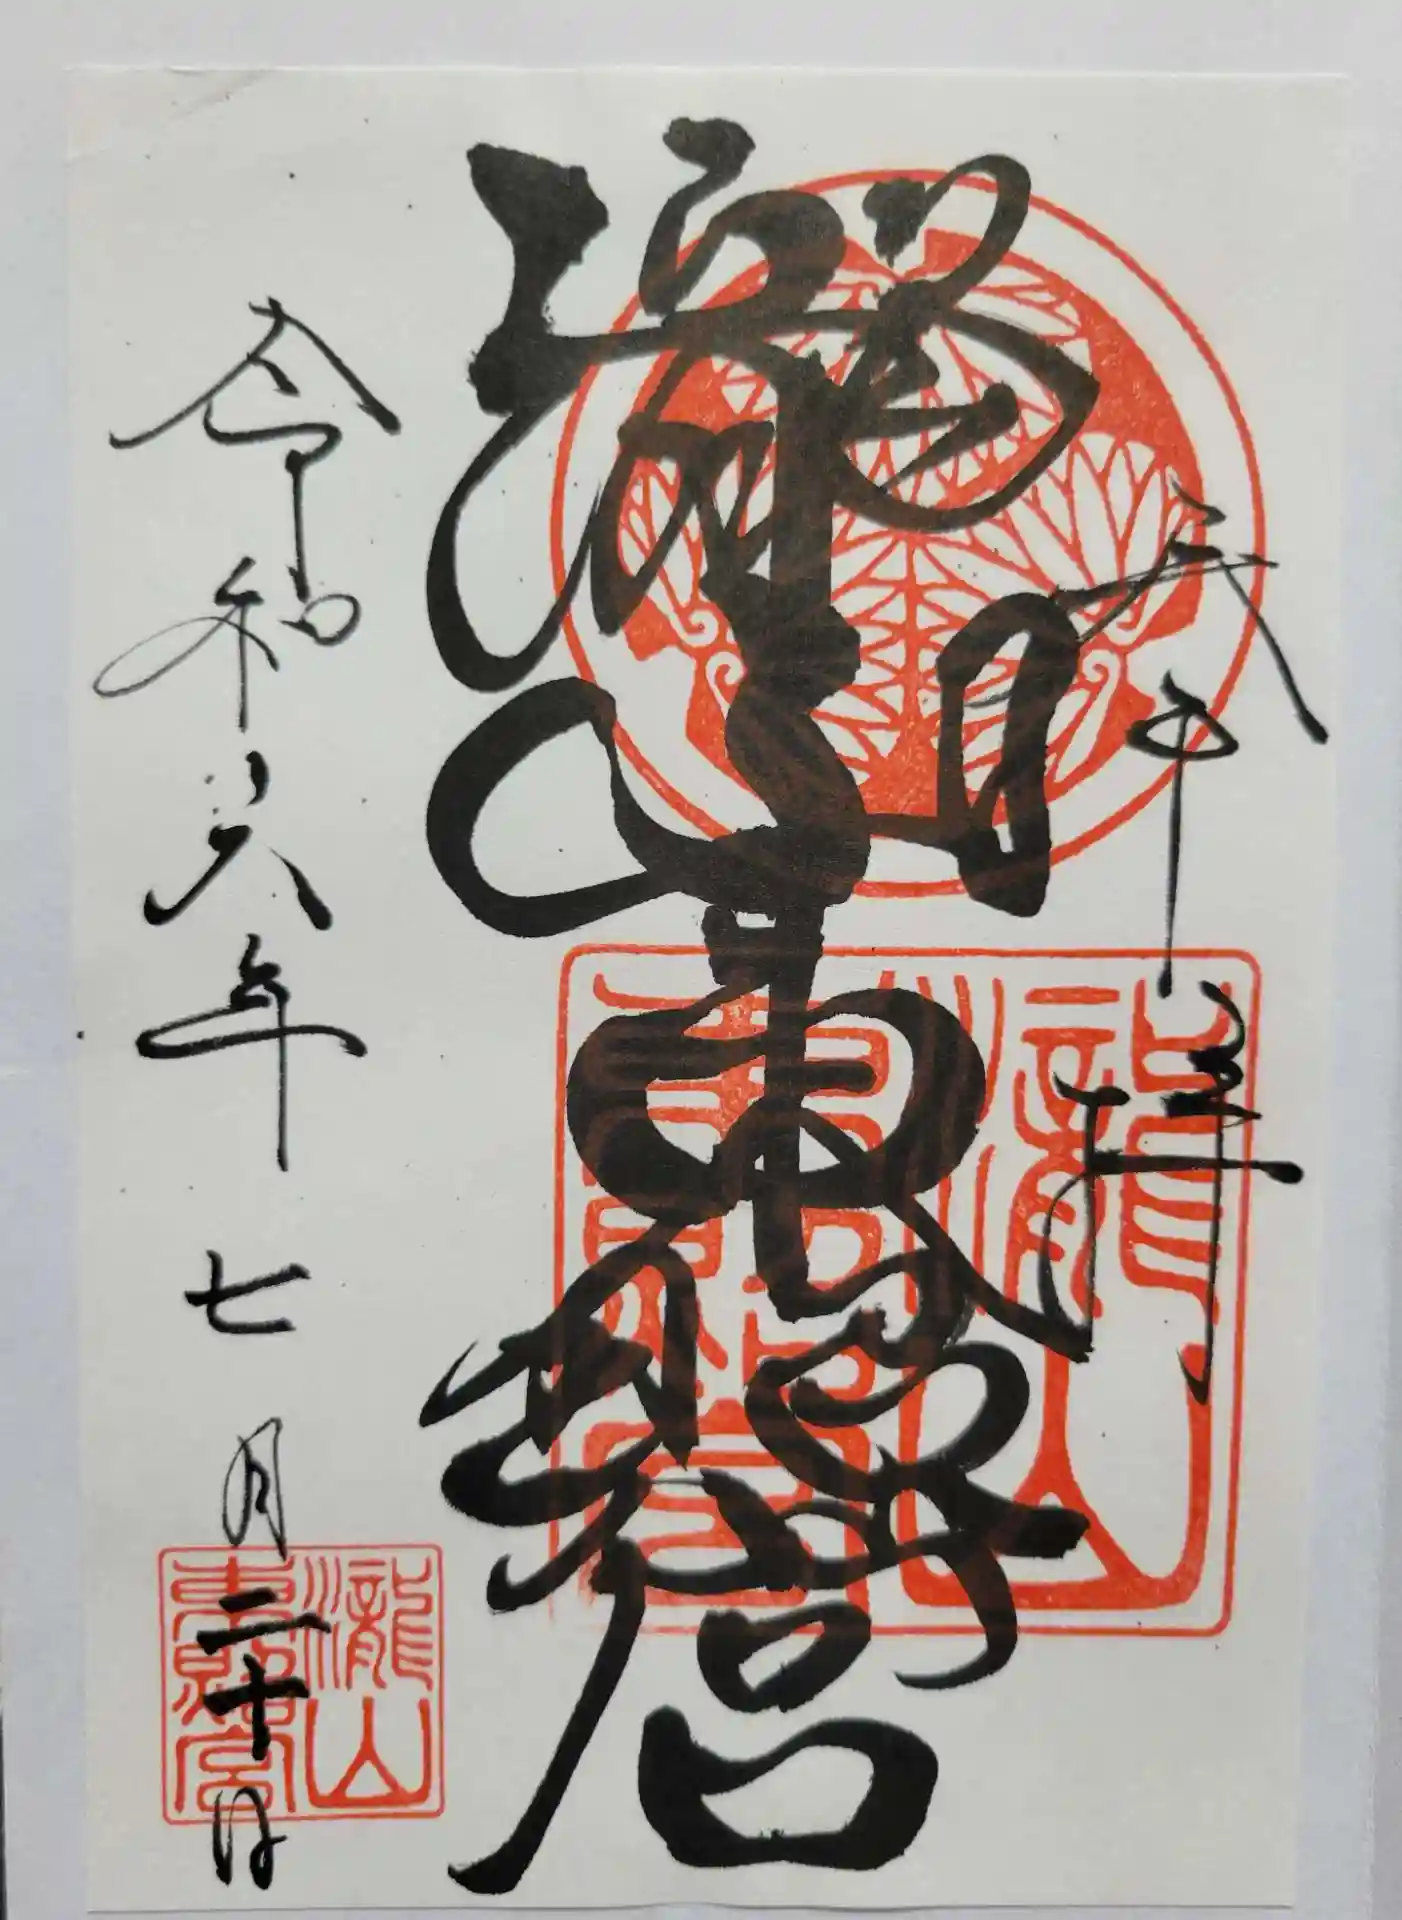 奉拝
瀧山東照宮
令和六年七月二十日
瀧山
東照宮
瀧山
東照宮